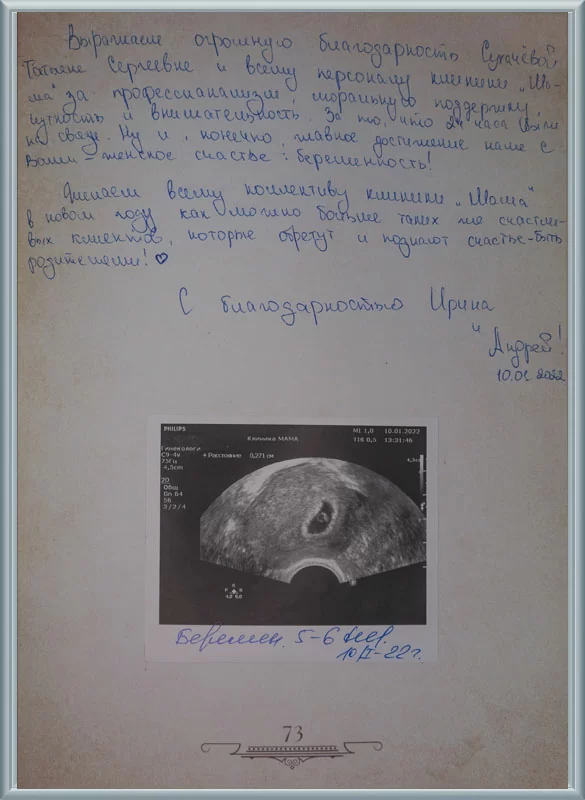 Выражаем огромную благодарность Сухачёвой
Татьяне Сергеевне и всему персоналу клиники „Ма-
ма" за профессианализм, моральную поддержку,
чуткость и внимательность. За то, что 24 часа были
на связи. Ну и, конечно, главное достижение наше с
Вами – женское счастье : беременность!
Желаем всему коллективу клиники „Мама"
в новом году как можно больше таких же счастли-
вых клиентов, которые обретут и познают счастье-быть
родителями! ♡
С благодарностью Ирина
и
Андрей!
10.01.2022
PHILIPS
MI 1,0 10.01.2022
Клиника МАМА
TIS 0,5 13:31:46
Гинекологи
C9-4v
+ Расстояние 0,271 см
75Гц
4,5cm
4,5см
2D
Общ
Gn 64
56
3/2/4
Беремен. 5-6 нед.
10/I-22г.
73